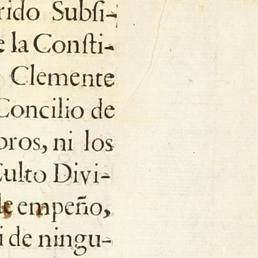 rido Subsi-
e la Consti-
Clemente
Concilio de
bros, ni los
Culto Divi-
de empeño,
i de ningu-